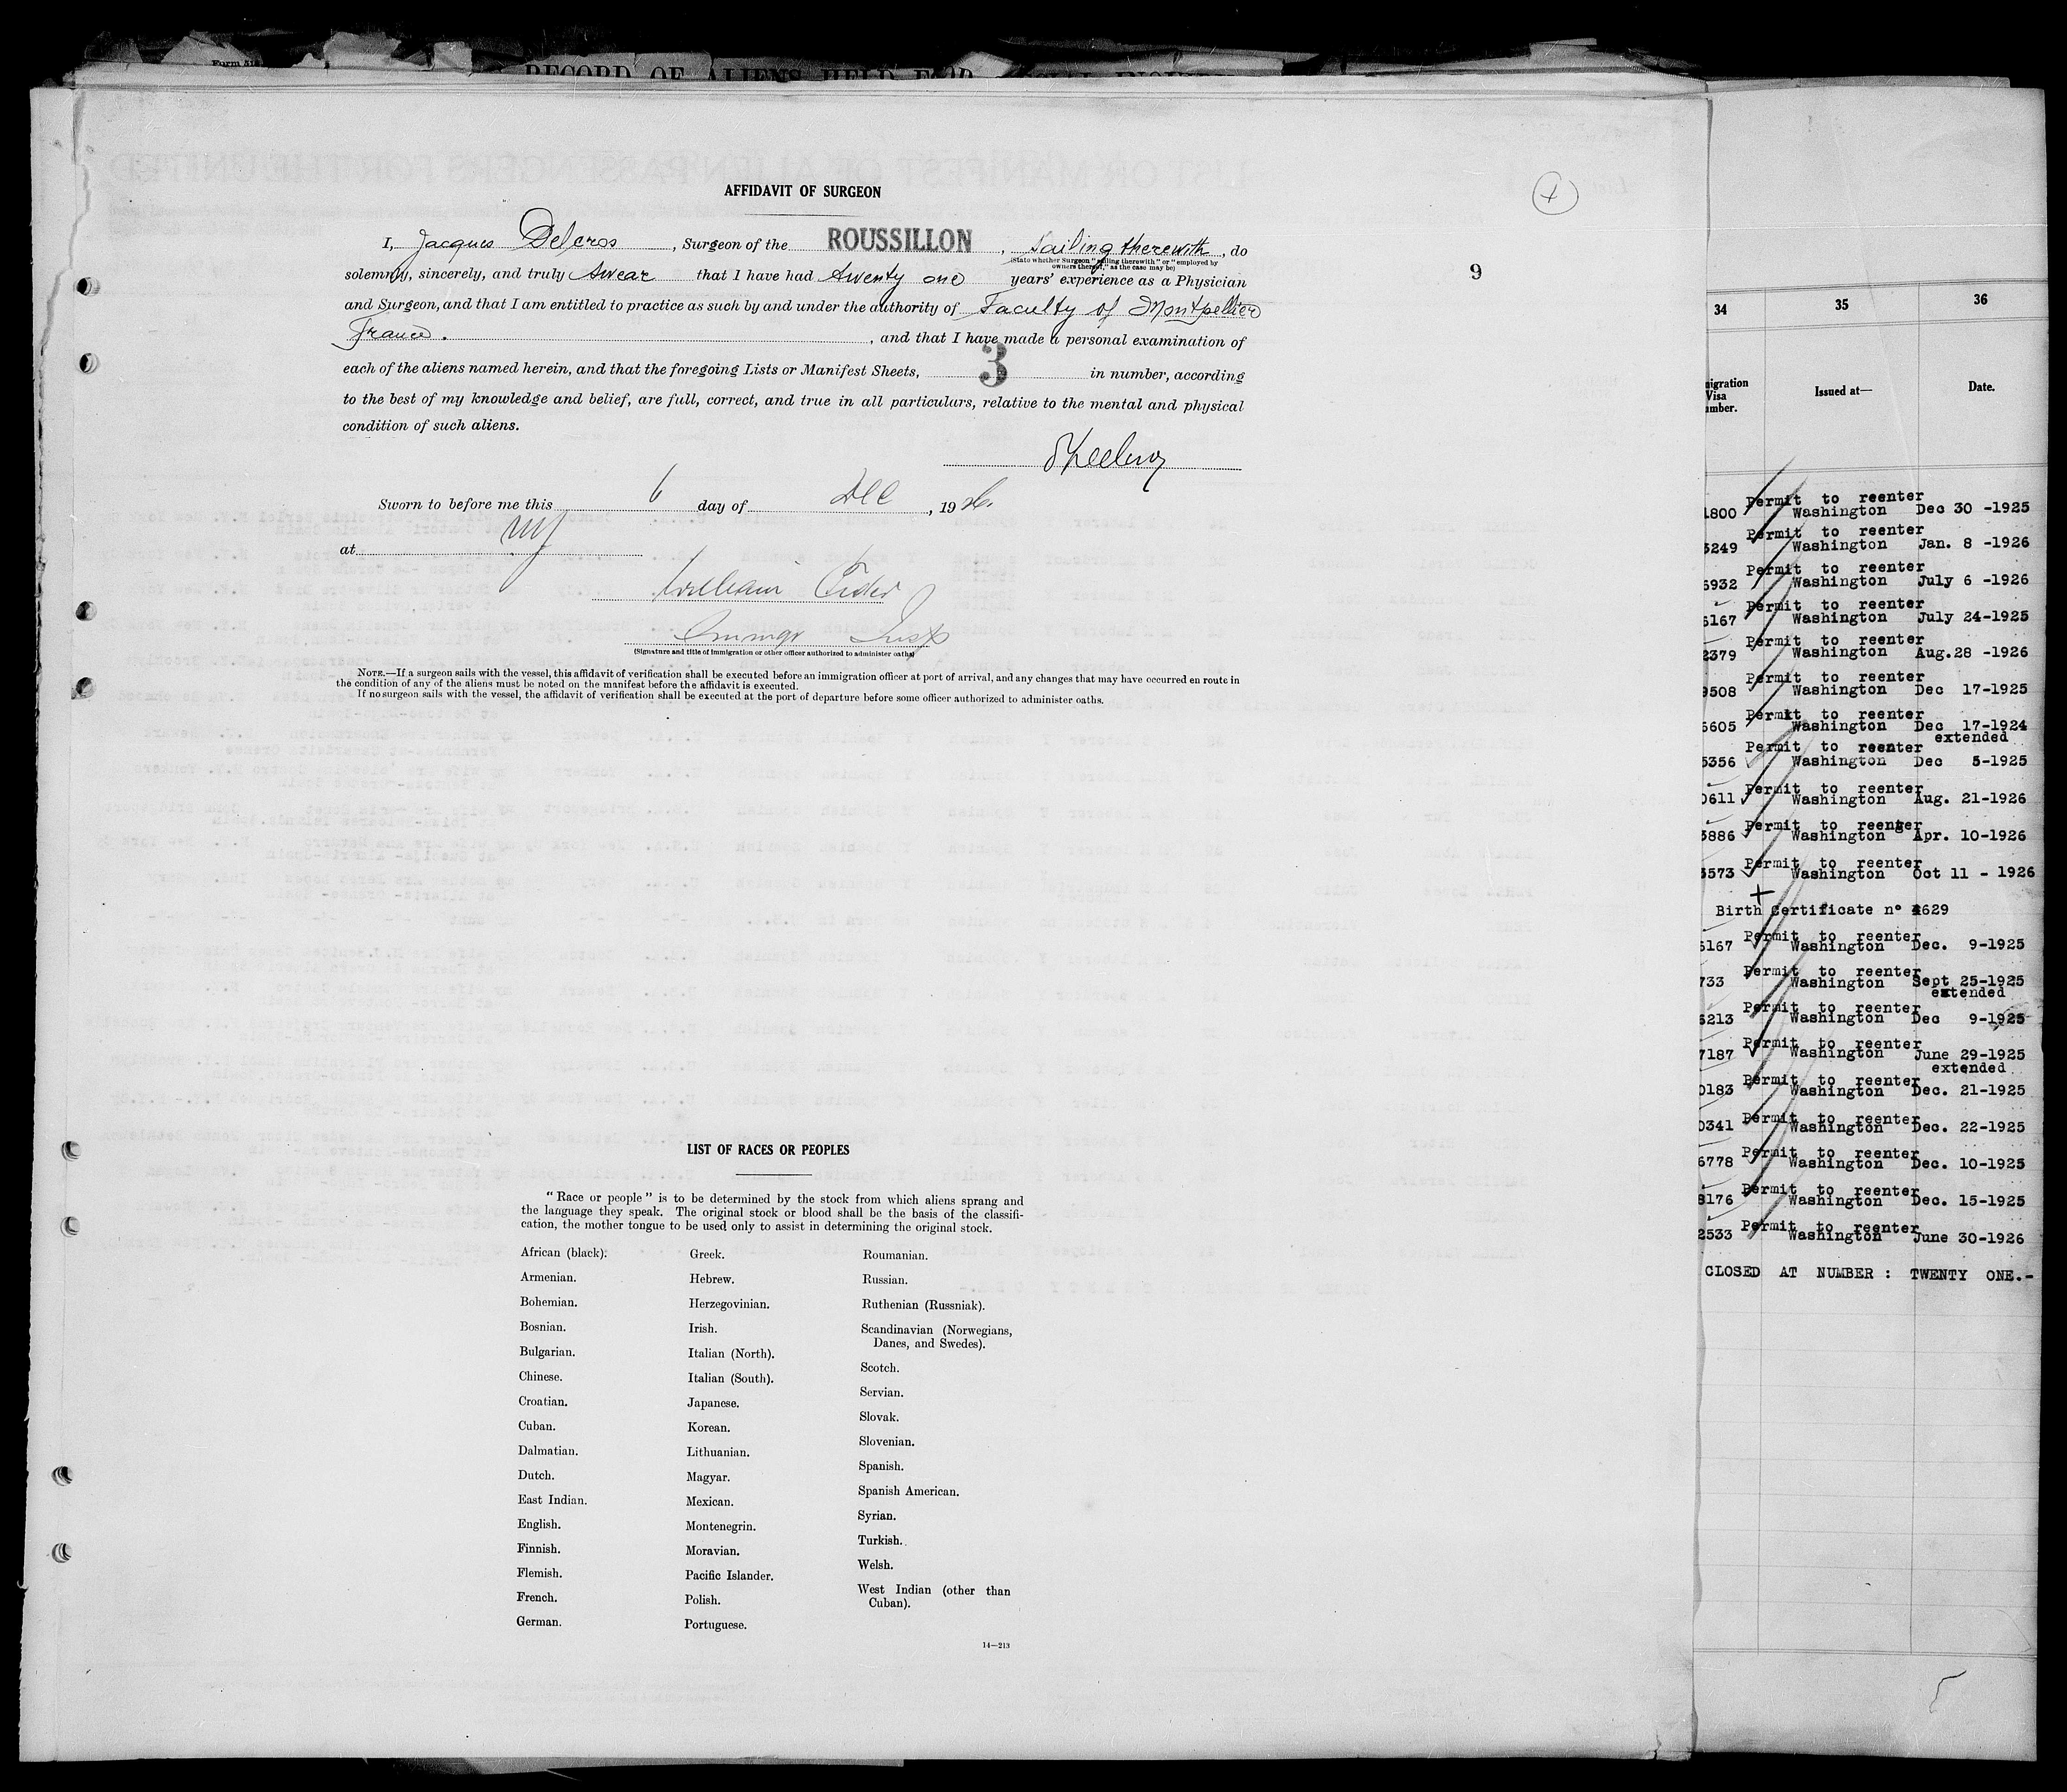 RECORD OF ALIENS HELD FOR
AFFIDAVIT OF SURGEON
I, Jacques Delcros, Surgeon of the ROUSSILLON, sailing therewith, do
(State whether Surgeon "sailing therewith" or "employed by
owners thereof," as the case may be)
solemnly, sincerely, and truly swear that I have had twenty one years' experience as a Physician
and Surgeon, and that I am entitled to practice as such by and under the authority of Faculty of Montpellier
France. , and that I have made a personal examination of
each of the aliens named herein, and that the foregoing Lists or Manifest Sheets, 3 in number, according
to the best of my knowledge and belief, are full, correct, and true in all particulars, relative to the mental and physical
condition of such aliens.
Sworn to before me this 6 day of Dec, 1926.
at NY
William
Immgr Insp
(Signature and title of immigration or other officer authorized to administer oaths)
NOTE.—If a surgeon sails with the vessel, this affidavit of verification shall be executed before an immigration officer at port of arrival, and any changes that may have occurred en route in
the condition of any of the aliens must be noted on the manifest before the affidavit is executed.
If no surgeon sails with the vessel, the affidavit of verification shall be executed at the port of departure before some officer authorized to administer oaths.
9
LIST OF RACES OR PEOPLES
"Race or people" is to be determined by the stock from which aliens sprang and
the language they speak. The original stock or blood shall be the basis of the classifi-
cation, the mother tongue to be used only to assist in determining the original stock.
African (black).
Armenian.
Bohemian.
Bosnian.
Bulgarian.
Chinese.
Croatian.
Cuban.
Dalmatian.
Dutch.
East Indian.
English.
Finnish.
Flemish.
French.
German.
Greek.
Hebrew.
Herzegovinian.
Irish.
Italian (North).
Italian (South).
Japanese.
Korean.
Lithuanian.
Magyar.
Mexican.
Montenegrin.
Moravian.
Pacific Islander.
Polish.
Portuguese.
Roumanian.
Russian.
Ruthenian (Russniak).
Scandinavian (Norwegians,
Danes, and Swedes).
Scotch.
Servian.
Slovak.
Slovenian.
Spanish.
Spanish American.
Syrian.
Turkish.
Welsh.
West Indian (other than
Cuban).
14—213
34 35 36
Visa
Issued at— Date.
Permit to reenter
1800 Washington Dec 30 -1925
Permit to reenter
3249 Washington Jan. 8 -1926
Permit to reenter
6932 Washington July 6 -1926
Permit to reenter
6167 Washington July 24-1925
Permit to reenter
2379 Washington Aug.28 -1926
Permit to reenter
9508 Washington Dec 17-1925
Permit to reenter
6605 Washington Dec 17-1924
extended
Permit to reenter
5356 Washington Dec 5-1925
Permit to reenter
0611 Washington Aug. 21-1926
Permit to reenter
3886 Washington Apr. 10-1926
Permit to reenter
3573 Washington Oct 11 - 1926
Birth Certificate n° 4629
Permit to reenter
6167 Washington Dec. 9-1925
Permit to reenter
733 Washington Sept 25-1925
extended
Permit to reenter
6213 Washington Dec 9-1925
Permit to reenter
7187 Washington June 29-1925
extended
Permit to reenter
0183 Washington Dec. 21-1925
Permit to reenter
0341 Washington Dec. 22-1925
Permit to reenter
6778 Washington Dec. 10-1925
Permit to reenter
8176 Washington Dec. 15-1925
Permit to reenter
2533 Washington June 30-1926
CLOSED AT NUMBER : TWENTY ONE.-